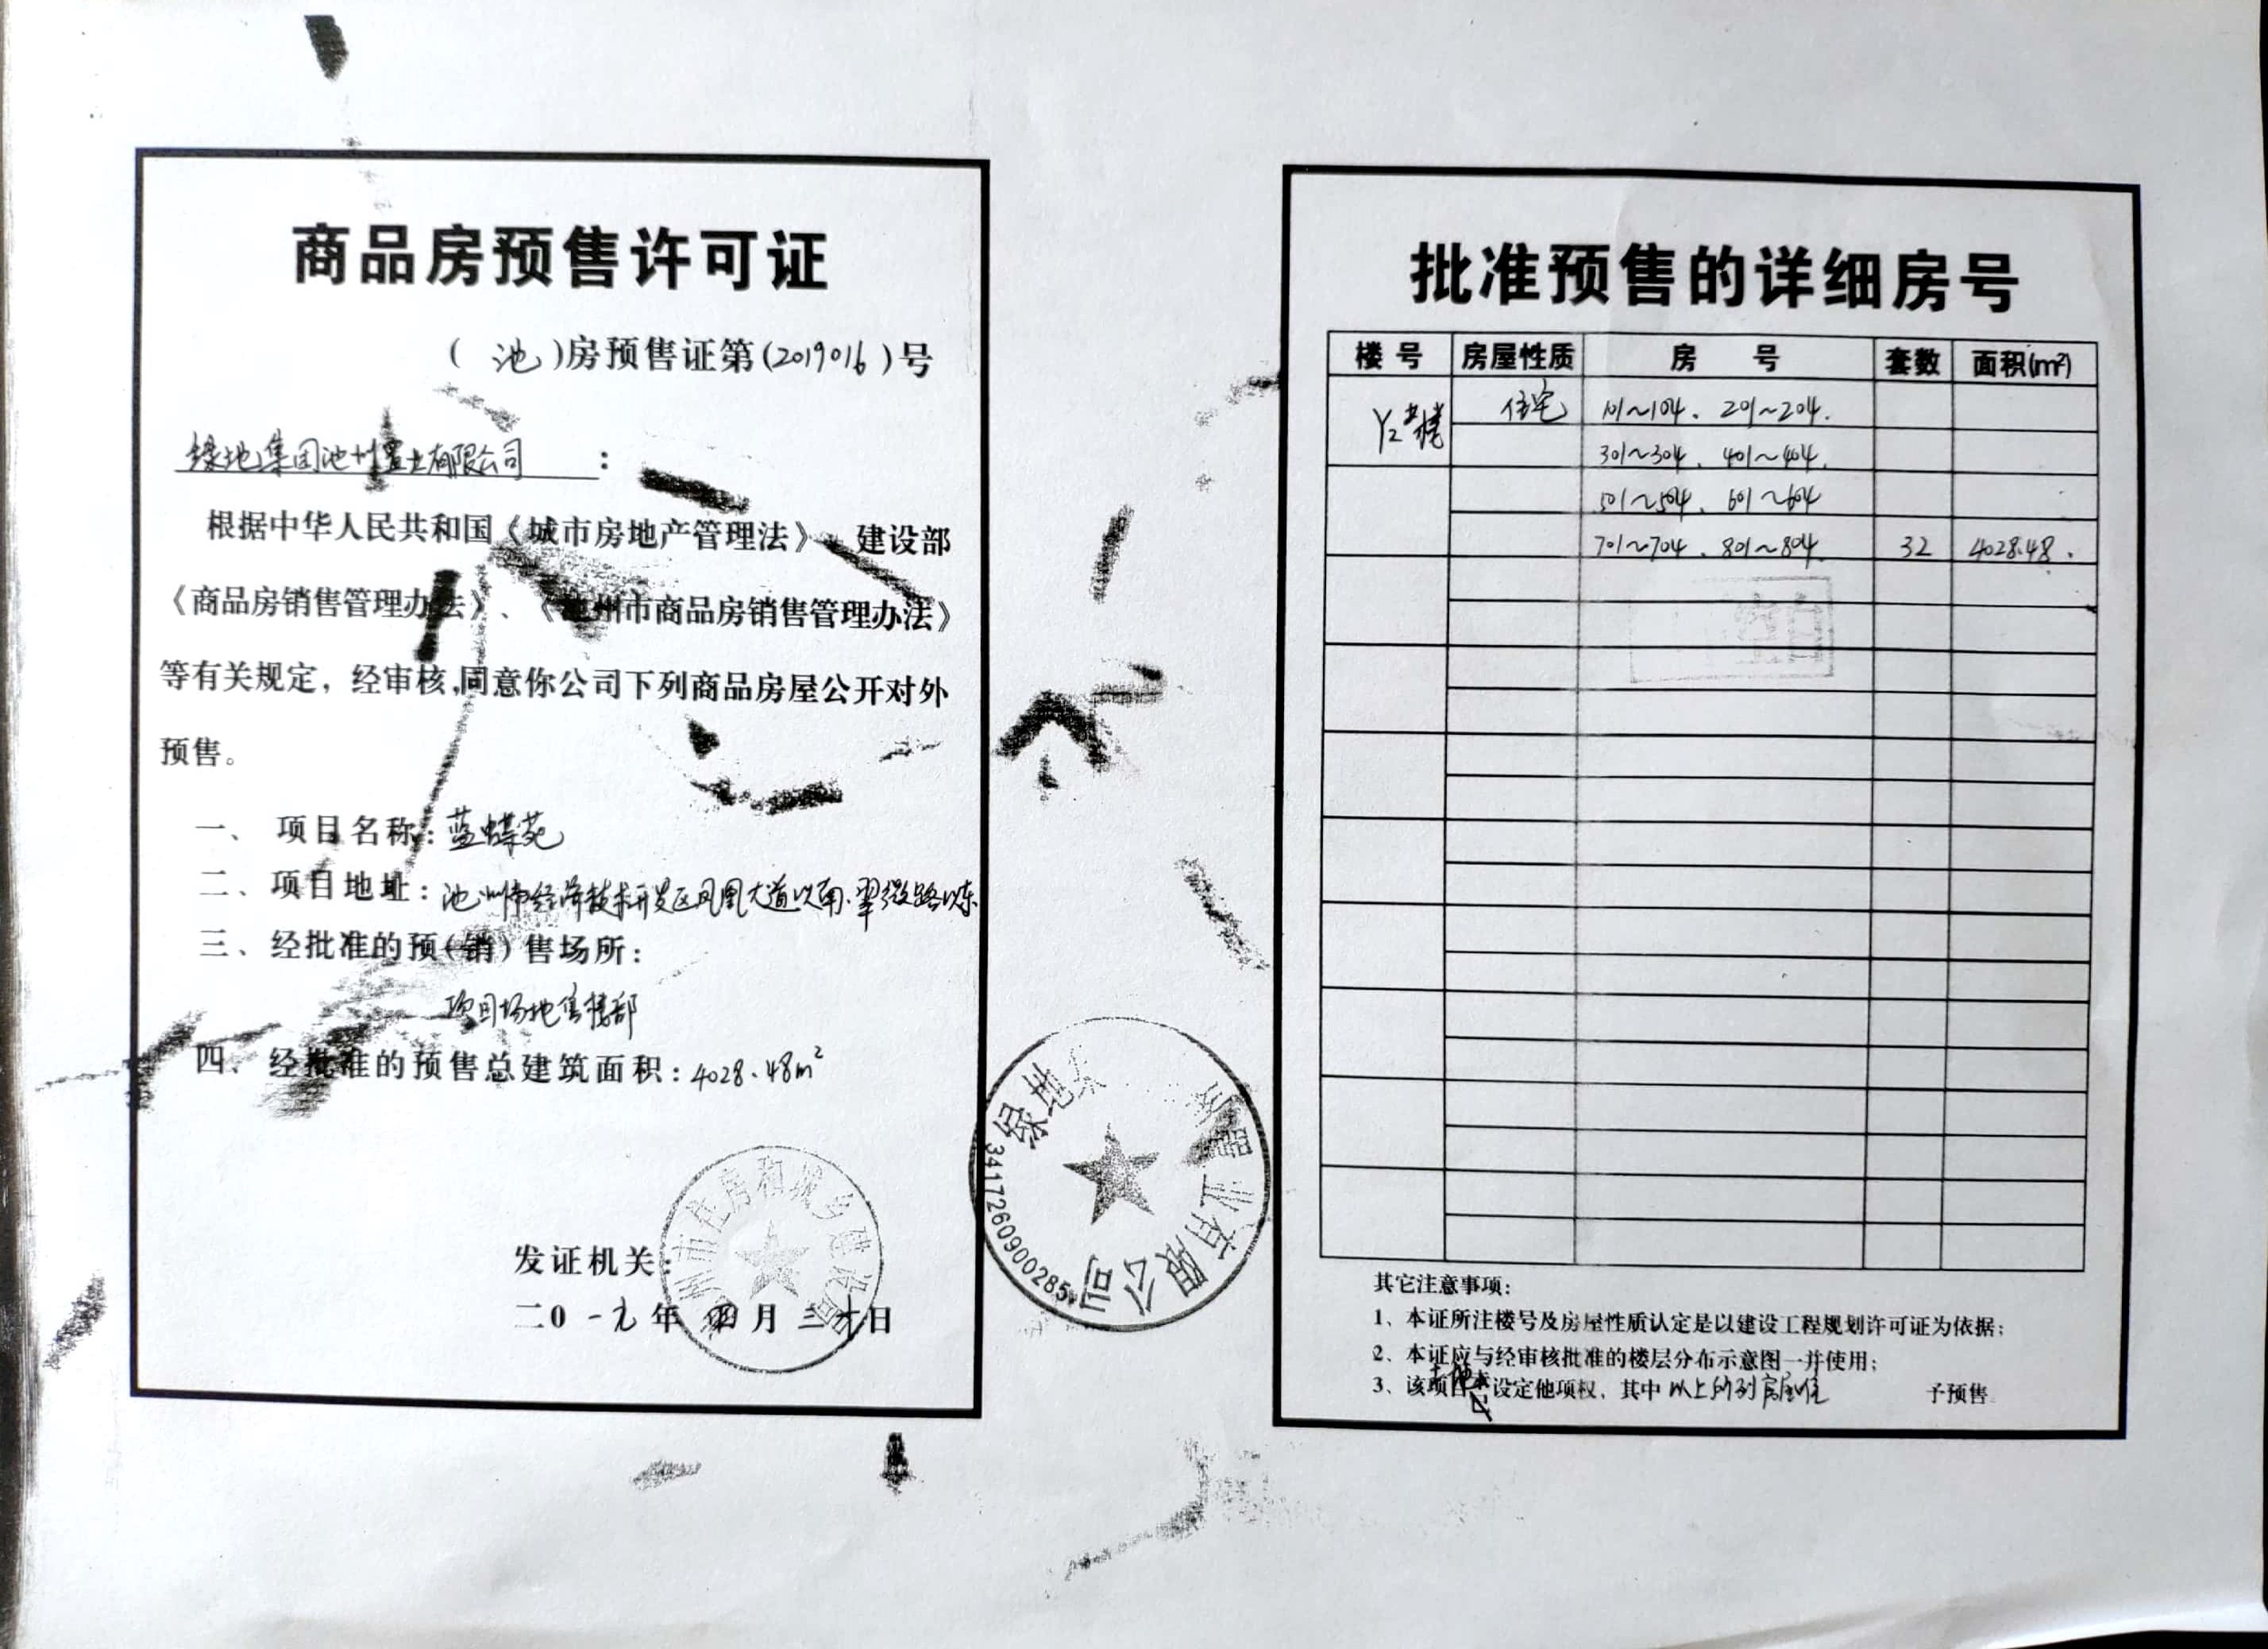 商品房预售许可证
（ 池 ）房预售证第（2019016）号
绿地集团池州置业有限公司：
根据中华人民共和国《城市房地产管理法》、建设部
《商品房销售管理办法》、《 州市商品房销售管理办法》
等有关规定，经审核，同意你公司下列商品房屋公开对外
预售。
一、 项目名称：蓝蝶苑
二、项目地址：池州市经济技术开发区凤凰大道以南、翠微路以东
三、经批准的预（销）售场所：
项目场地售楼部
四、经批准的预售总建筑面积：4028.48m²
州市住房和城乡建设局
发证机关：
二0一九年 四月 三十日
绿地 州置业有限公司
3417260900285
批准预售的详细房号
楼号 房屋性质 房 号 套数 面积(m²)
Y2#楼 住宅 101~104、201~204、
301~304、401~404、
501~504、601~604
701~704、801~804、 32 4028.48、
其它注意事项：
1、本证所注楼号及房屋性质认定是以建设工程规划许可证为依据；
2、本证应与经审核批准的楼层分布示意图一并使用；
3、该项目土地未设定他项权，其中以上所列房屋准 予预售